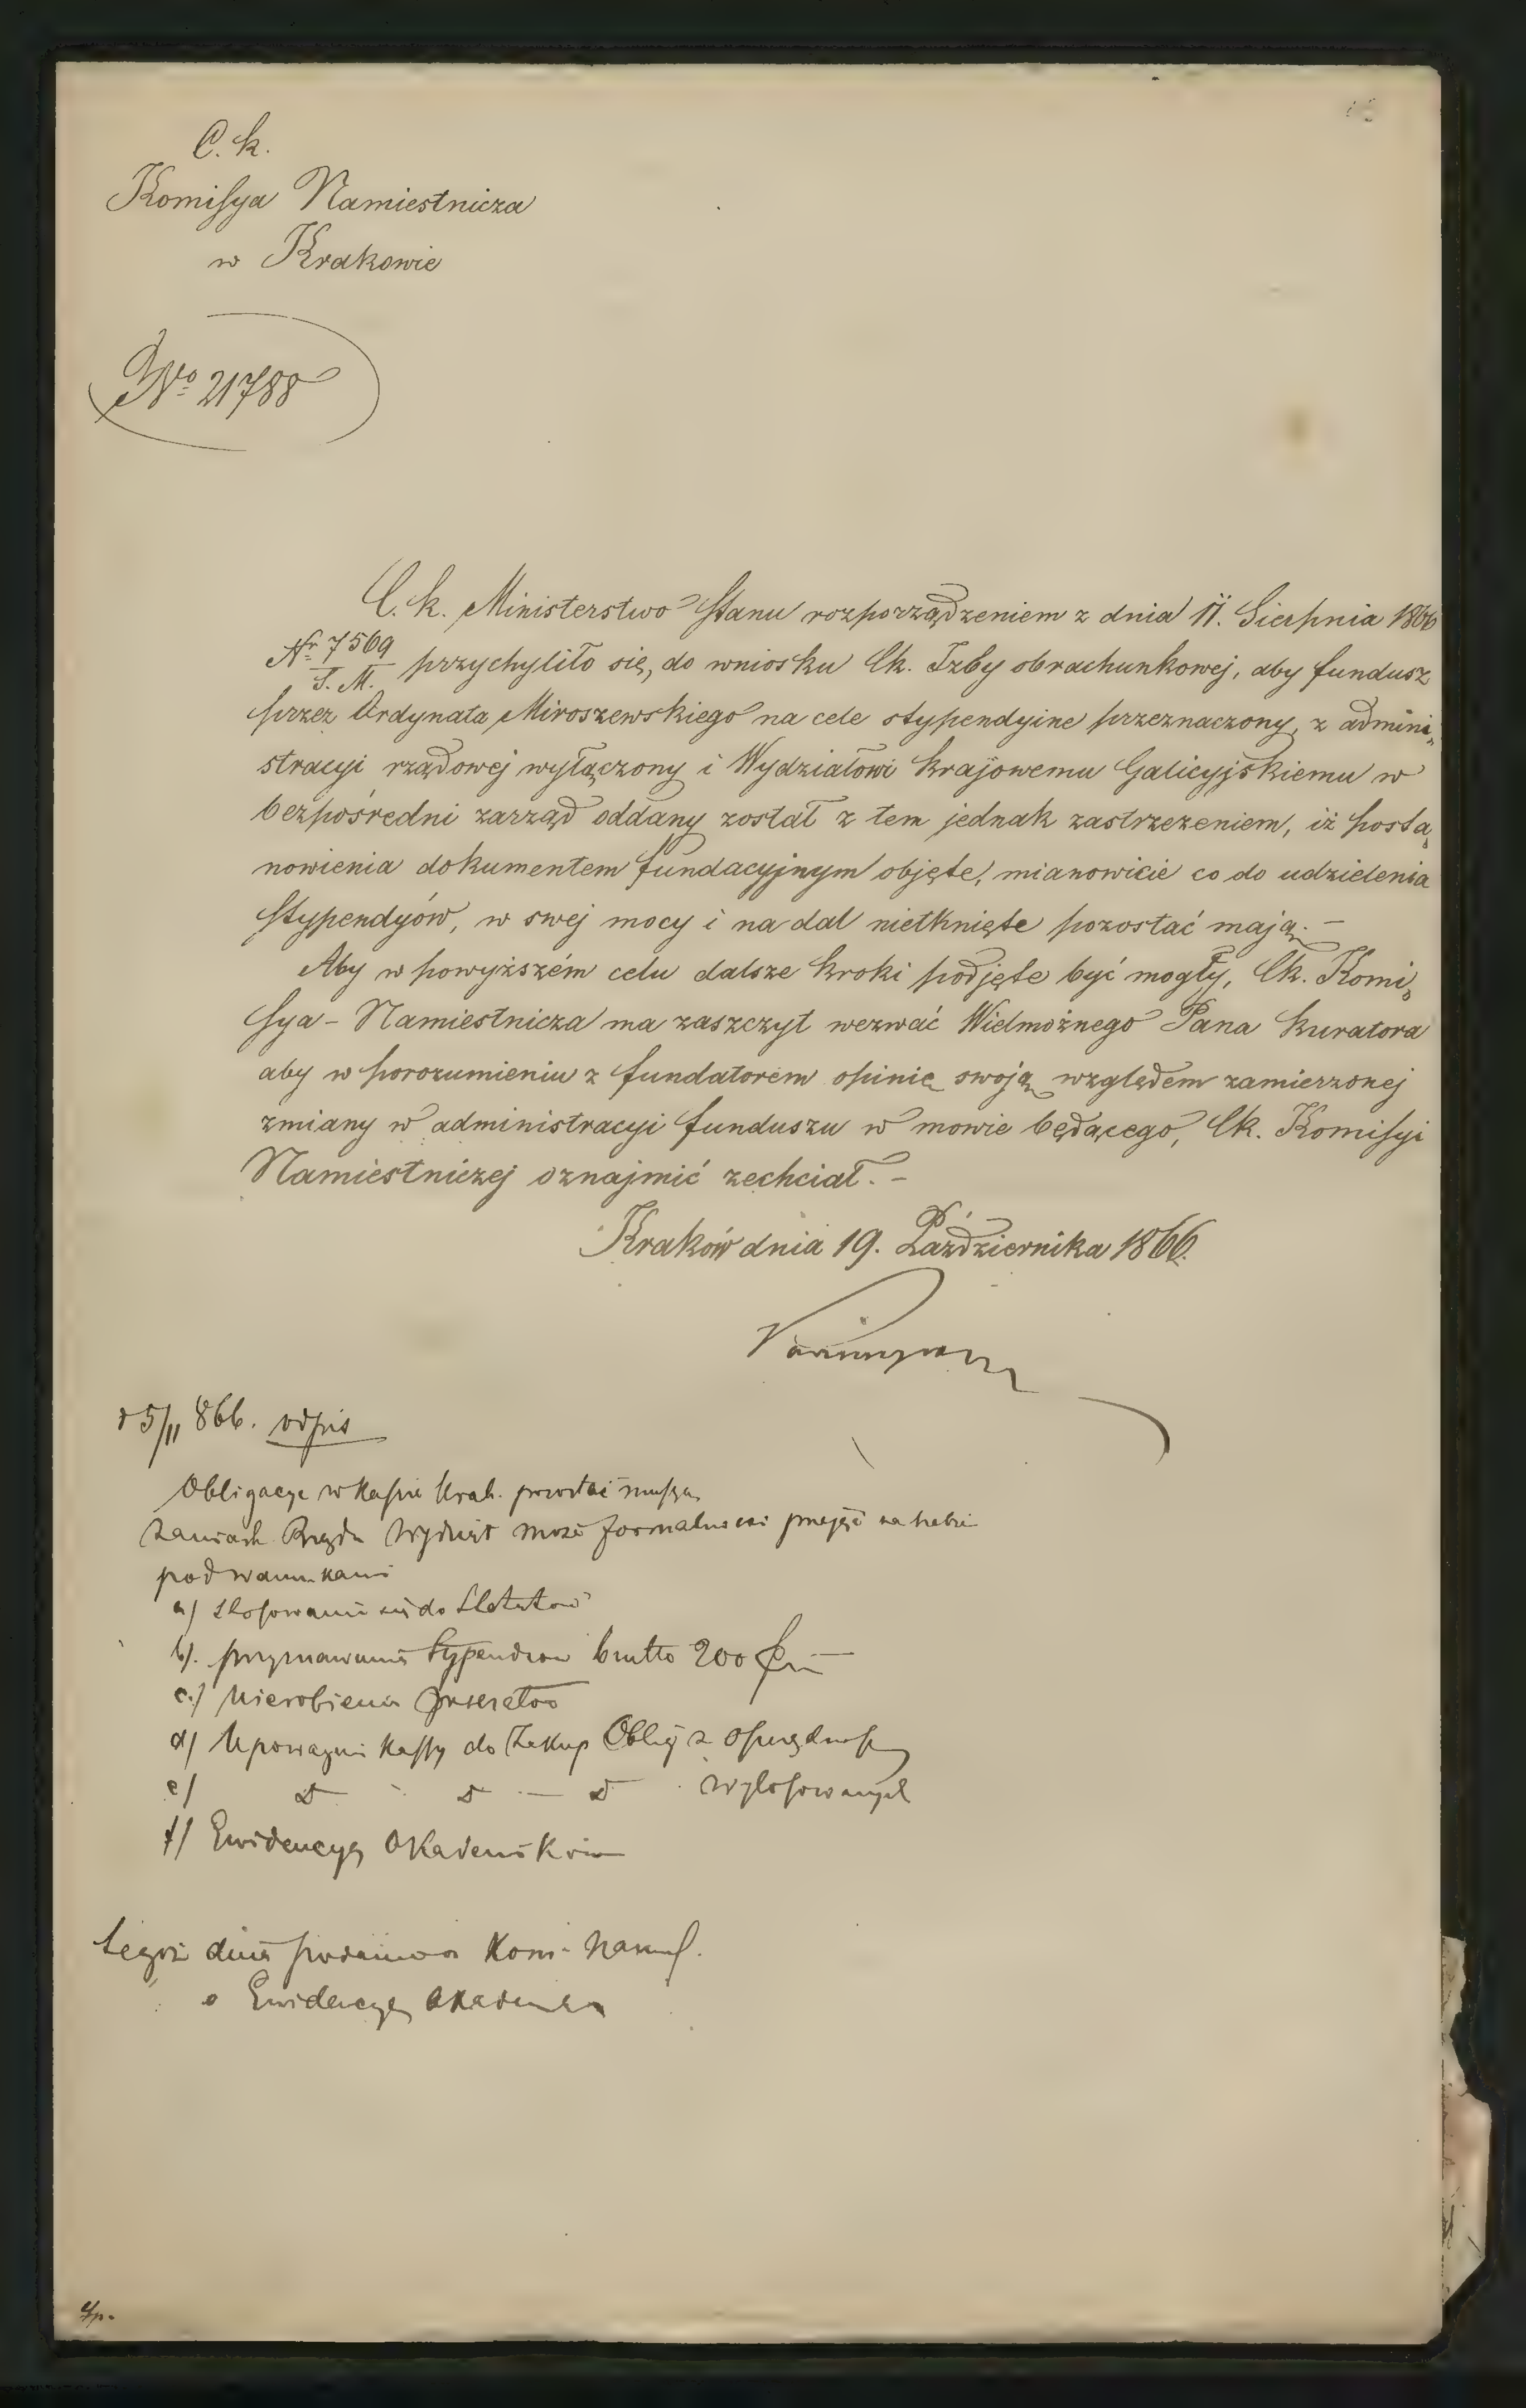 C. k.
Komisya Namiestnicza
w Krakowie
No 21788
C. k. Ministerstwo Stanu rozporządzeniem z dnia 11. Sierpnia 1866
Nr 7569
S. M.
przychyliło się, do wniosku Ck. Izby obrachunkowej, aby fundusz
przez Ordynata Miroszewskiego na cele stypendyine przeznaczony, z admini„
stracyi rządowej wyłączony i Wydziałowi Krajowemu Galicyjskiemu w
bezpośredni zarząd oddany został z tem jednak zastrzeżeniem, iż posta„
nowienia dokumentem fundacyjnym objęte, mianowicie co do udzielenia
Stypendyów, w swej mocy i na dal nietknięte pozostać mają. –
Aby w powyższém celu dalsze kroki podjęte być mogły, Ck. Komi„
sya - Namiestnicza ma zaszczyt wezwać Wielmożnego Pana Kuratora
aby w porozumieniu z fundatorem opinię swoją względem zamierzonej
zmiany w administracyi funduszu w mowie będącego, Ck. Komisyi
Namiestniczej oznajmić zechciał. –
Kraków dnia 19. Października 1866.
5/11 866. odpis
Obligacye w Kasie Krak. pozostać muszą
Wydział może formalności przyjąć na siebie
pod warunkami
a) Stosowania się do Statutów
b). przyznawania Stypendiów brutto 200
c.) Nierobienia
d) Upoważni Kassy do Zakup Oblig z
e) d – d – d wylosowanych
f) Ewidencyą Akademików
tegoż dnia Kom. Namies.
o Ewidencyą